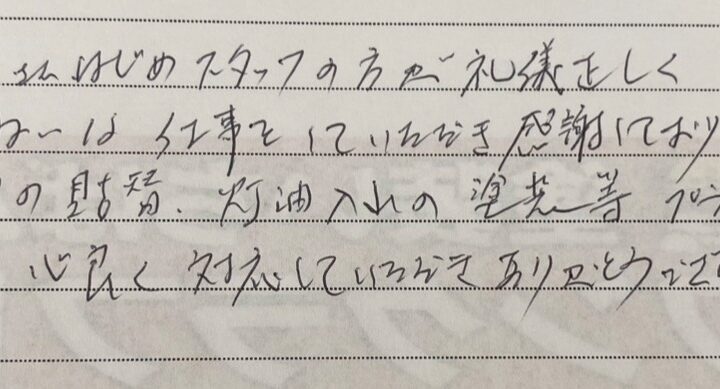 はじめスタッフの方が礼儀正しく
仕事をしていただき感謝しており
の貼替、灯油入れの塗装等
心良く対応していただきありがとうござ